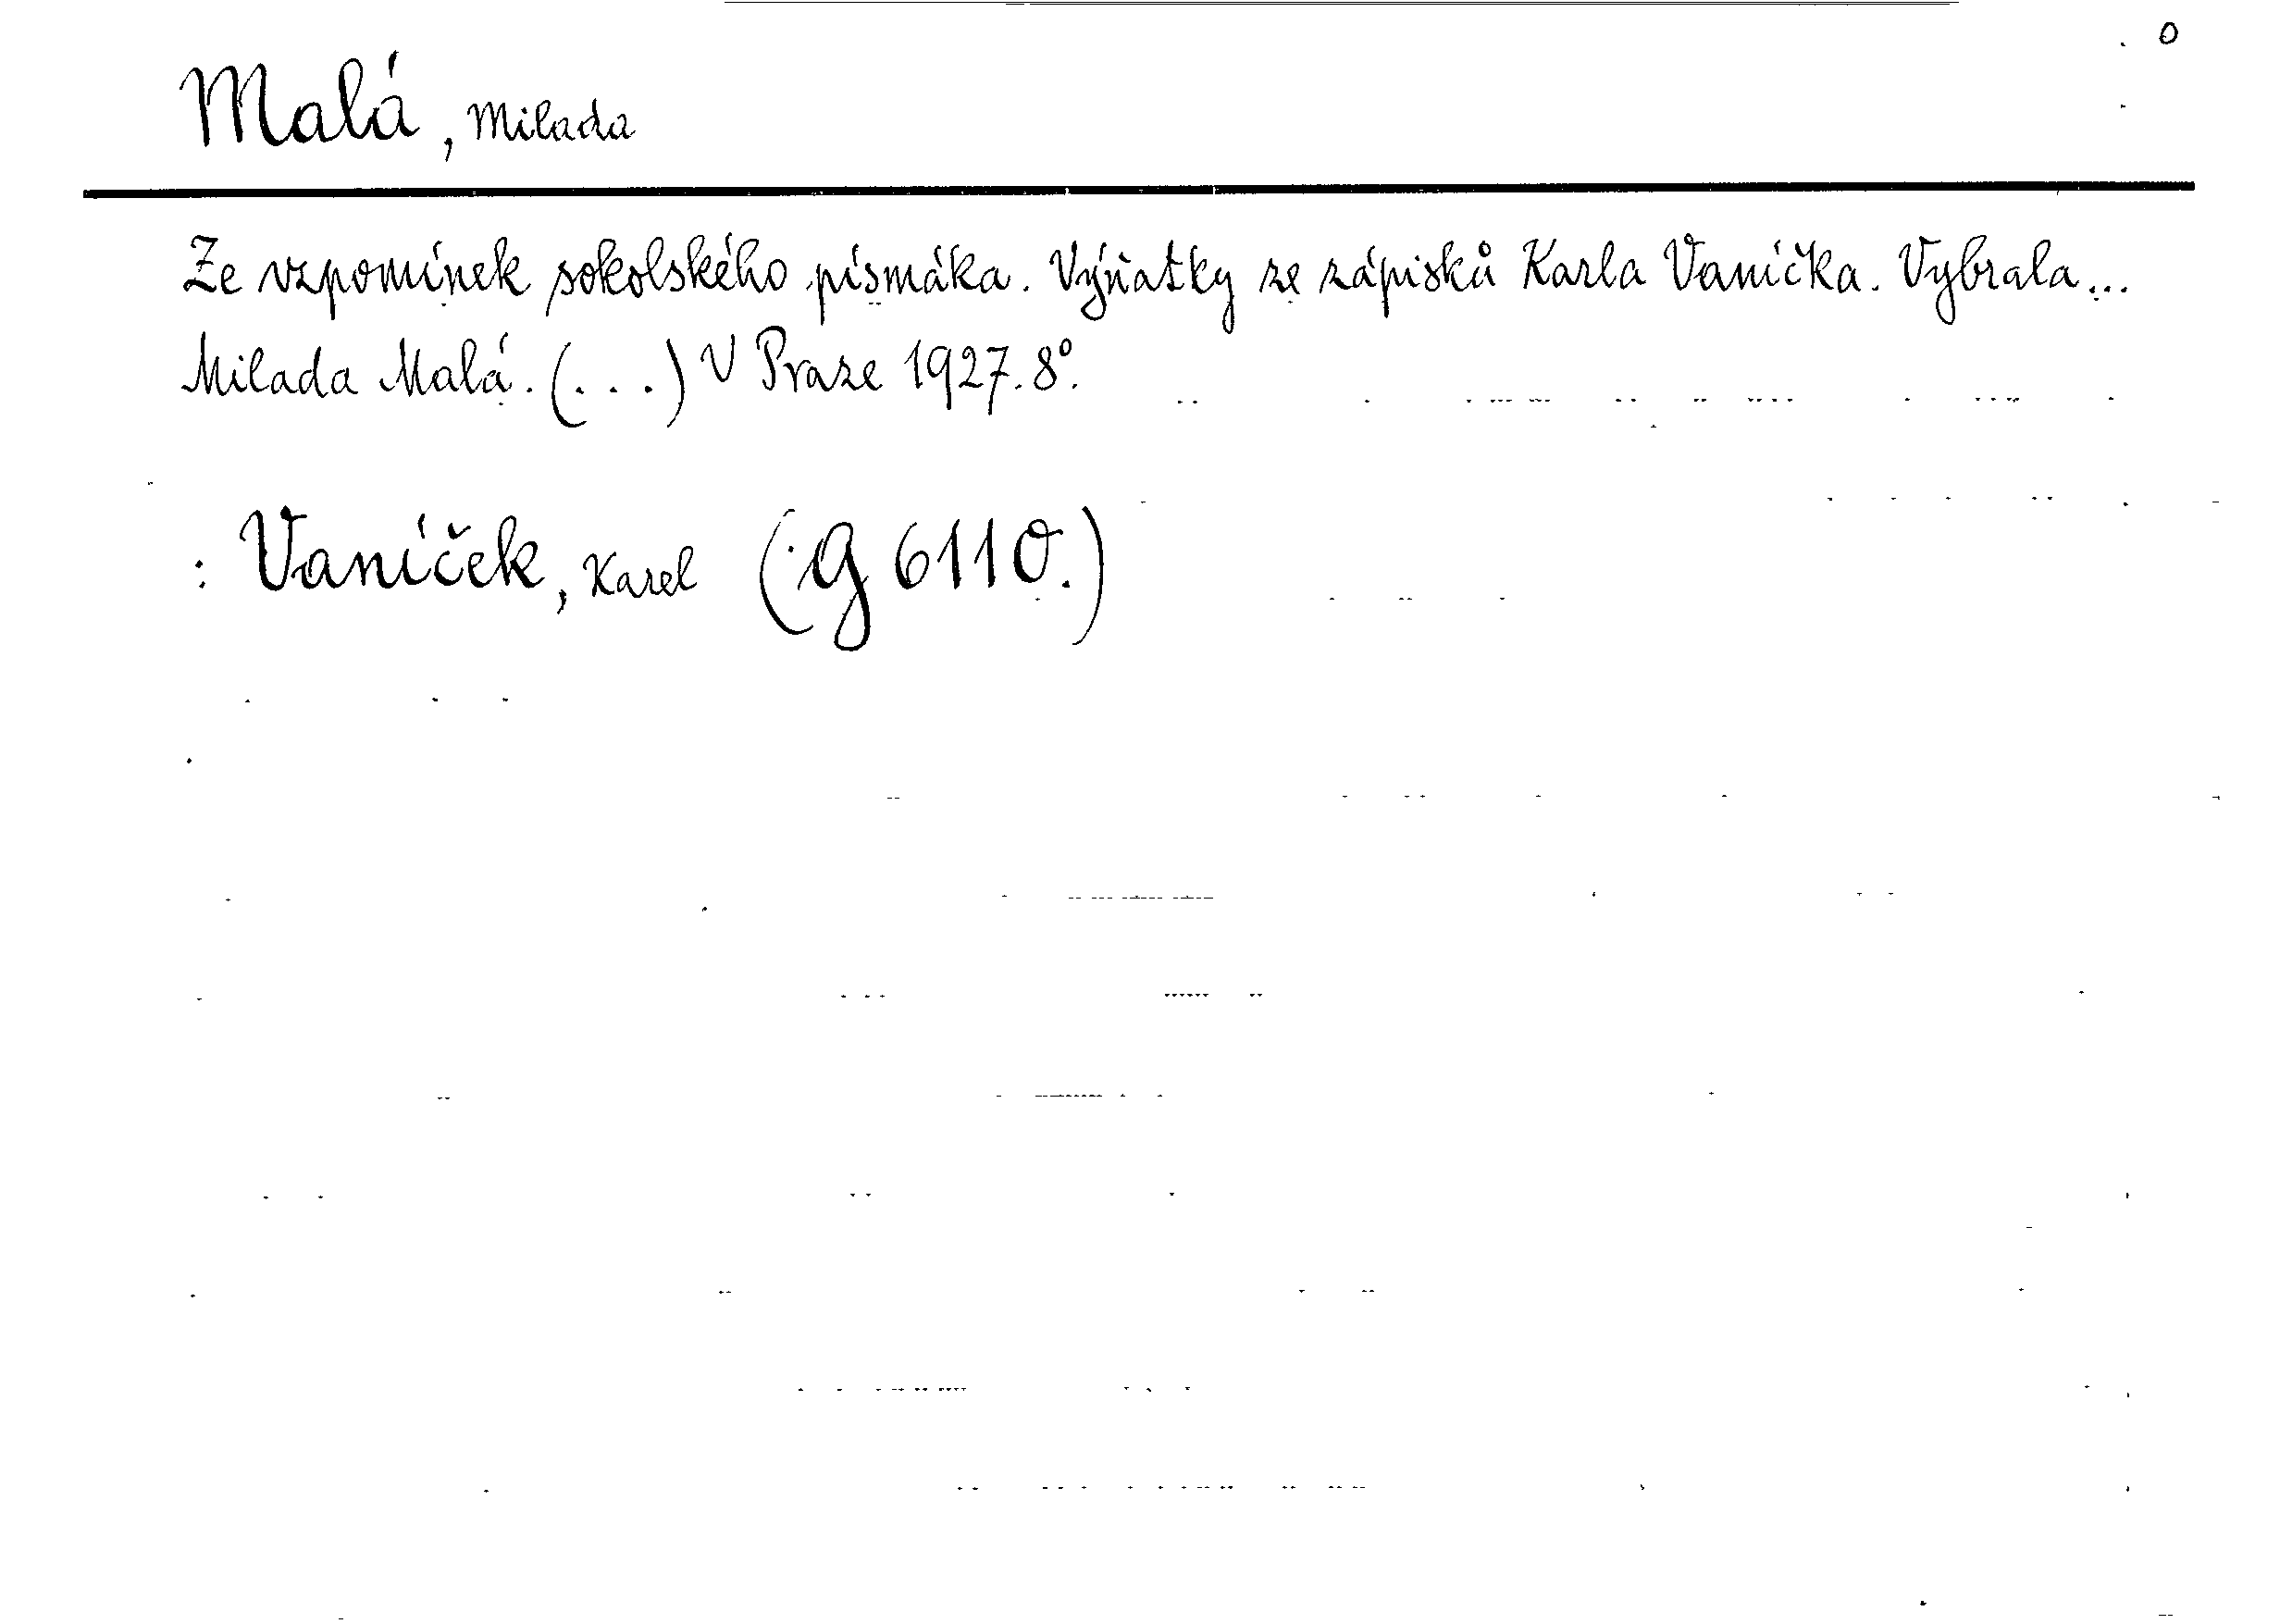 o
Malá, Milada
Ze vzpomínek sokolského písmáka. Výňatky ze zápisků Karla Vaníčka. Vybrala...
Milada Malá. (...) V Praze 1927. 8°.
: Vaníček, Karel (: g 6110.)